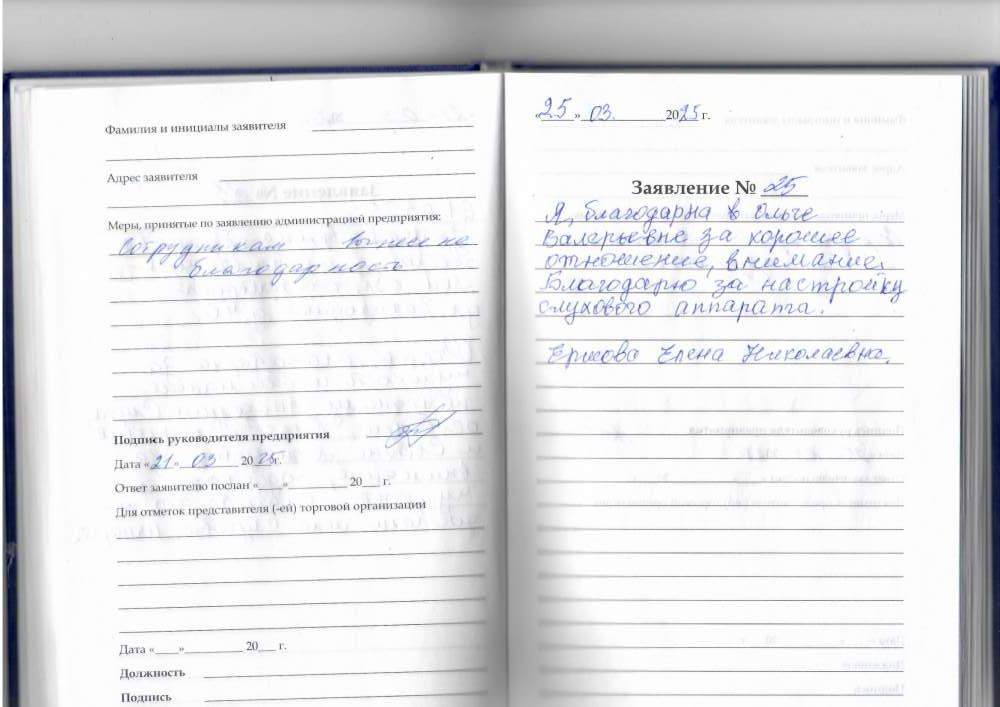 Фамилия и инициалы заявителя
Адрес заявителя
Меры, принятые по заявлению администрацией предприятия:
Сотрудникам вынесена
благодарность
Подпись руководителя предприятия
Дата «21» 03 2025г.
Ответ заявителю послан «____»__________ 20___ г.
Для отметок представителя (-ей) торговой организации
Дата «____»__________ 20___ г.
Должность
Подпись
«25» 03. 2025 г.
Заявление № 25
Я, благодарна в Ольге
Валерьевне за хорошее
отношение, внимание.
Благодарю за настройку
слухового аппарата.
Ершова Елена Николаевна.